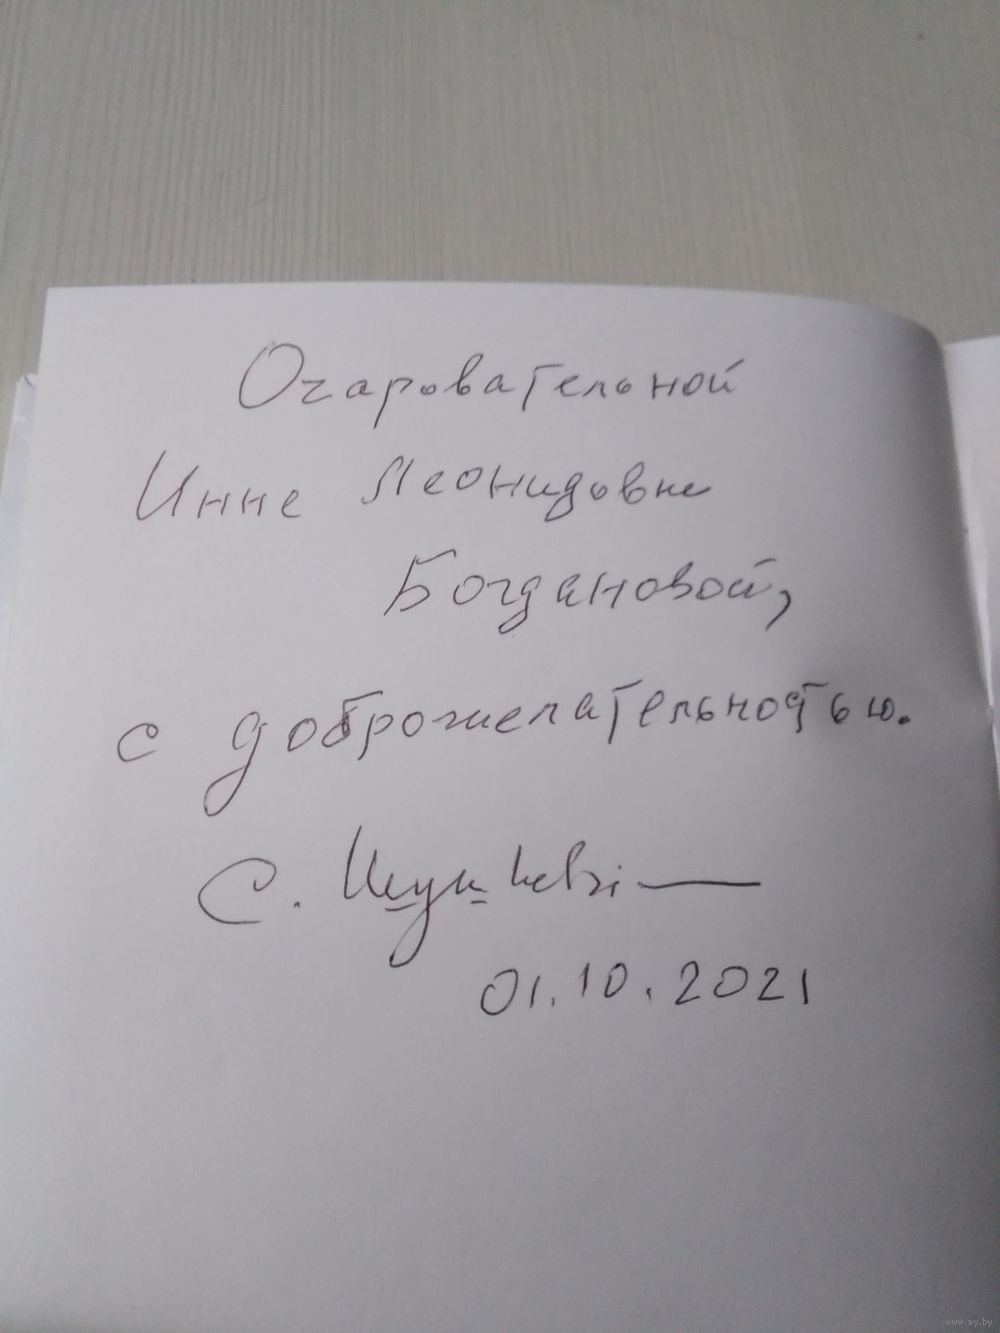 Очаровательной
Инне Леонидовне
Богдановой,
с доброжелательностью.
С. Шушкевіч
01.10.2021
www.ay.by